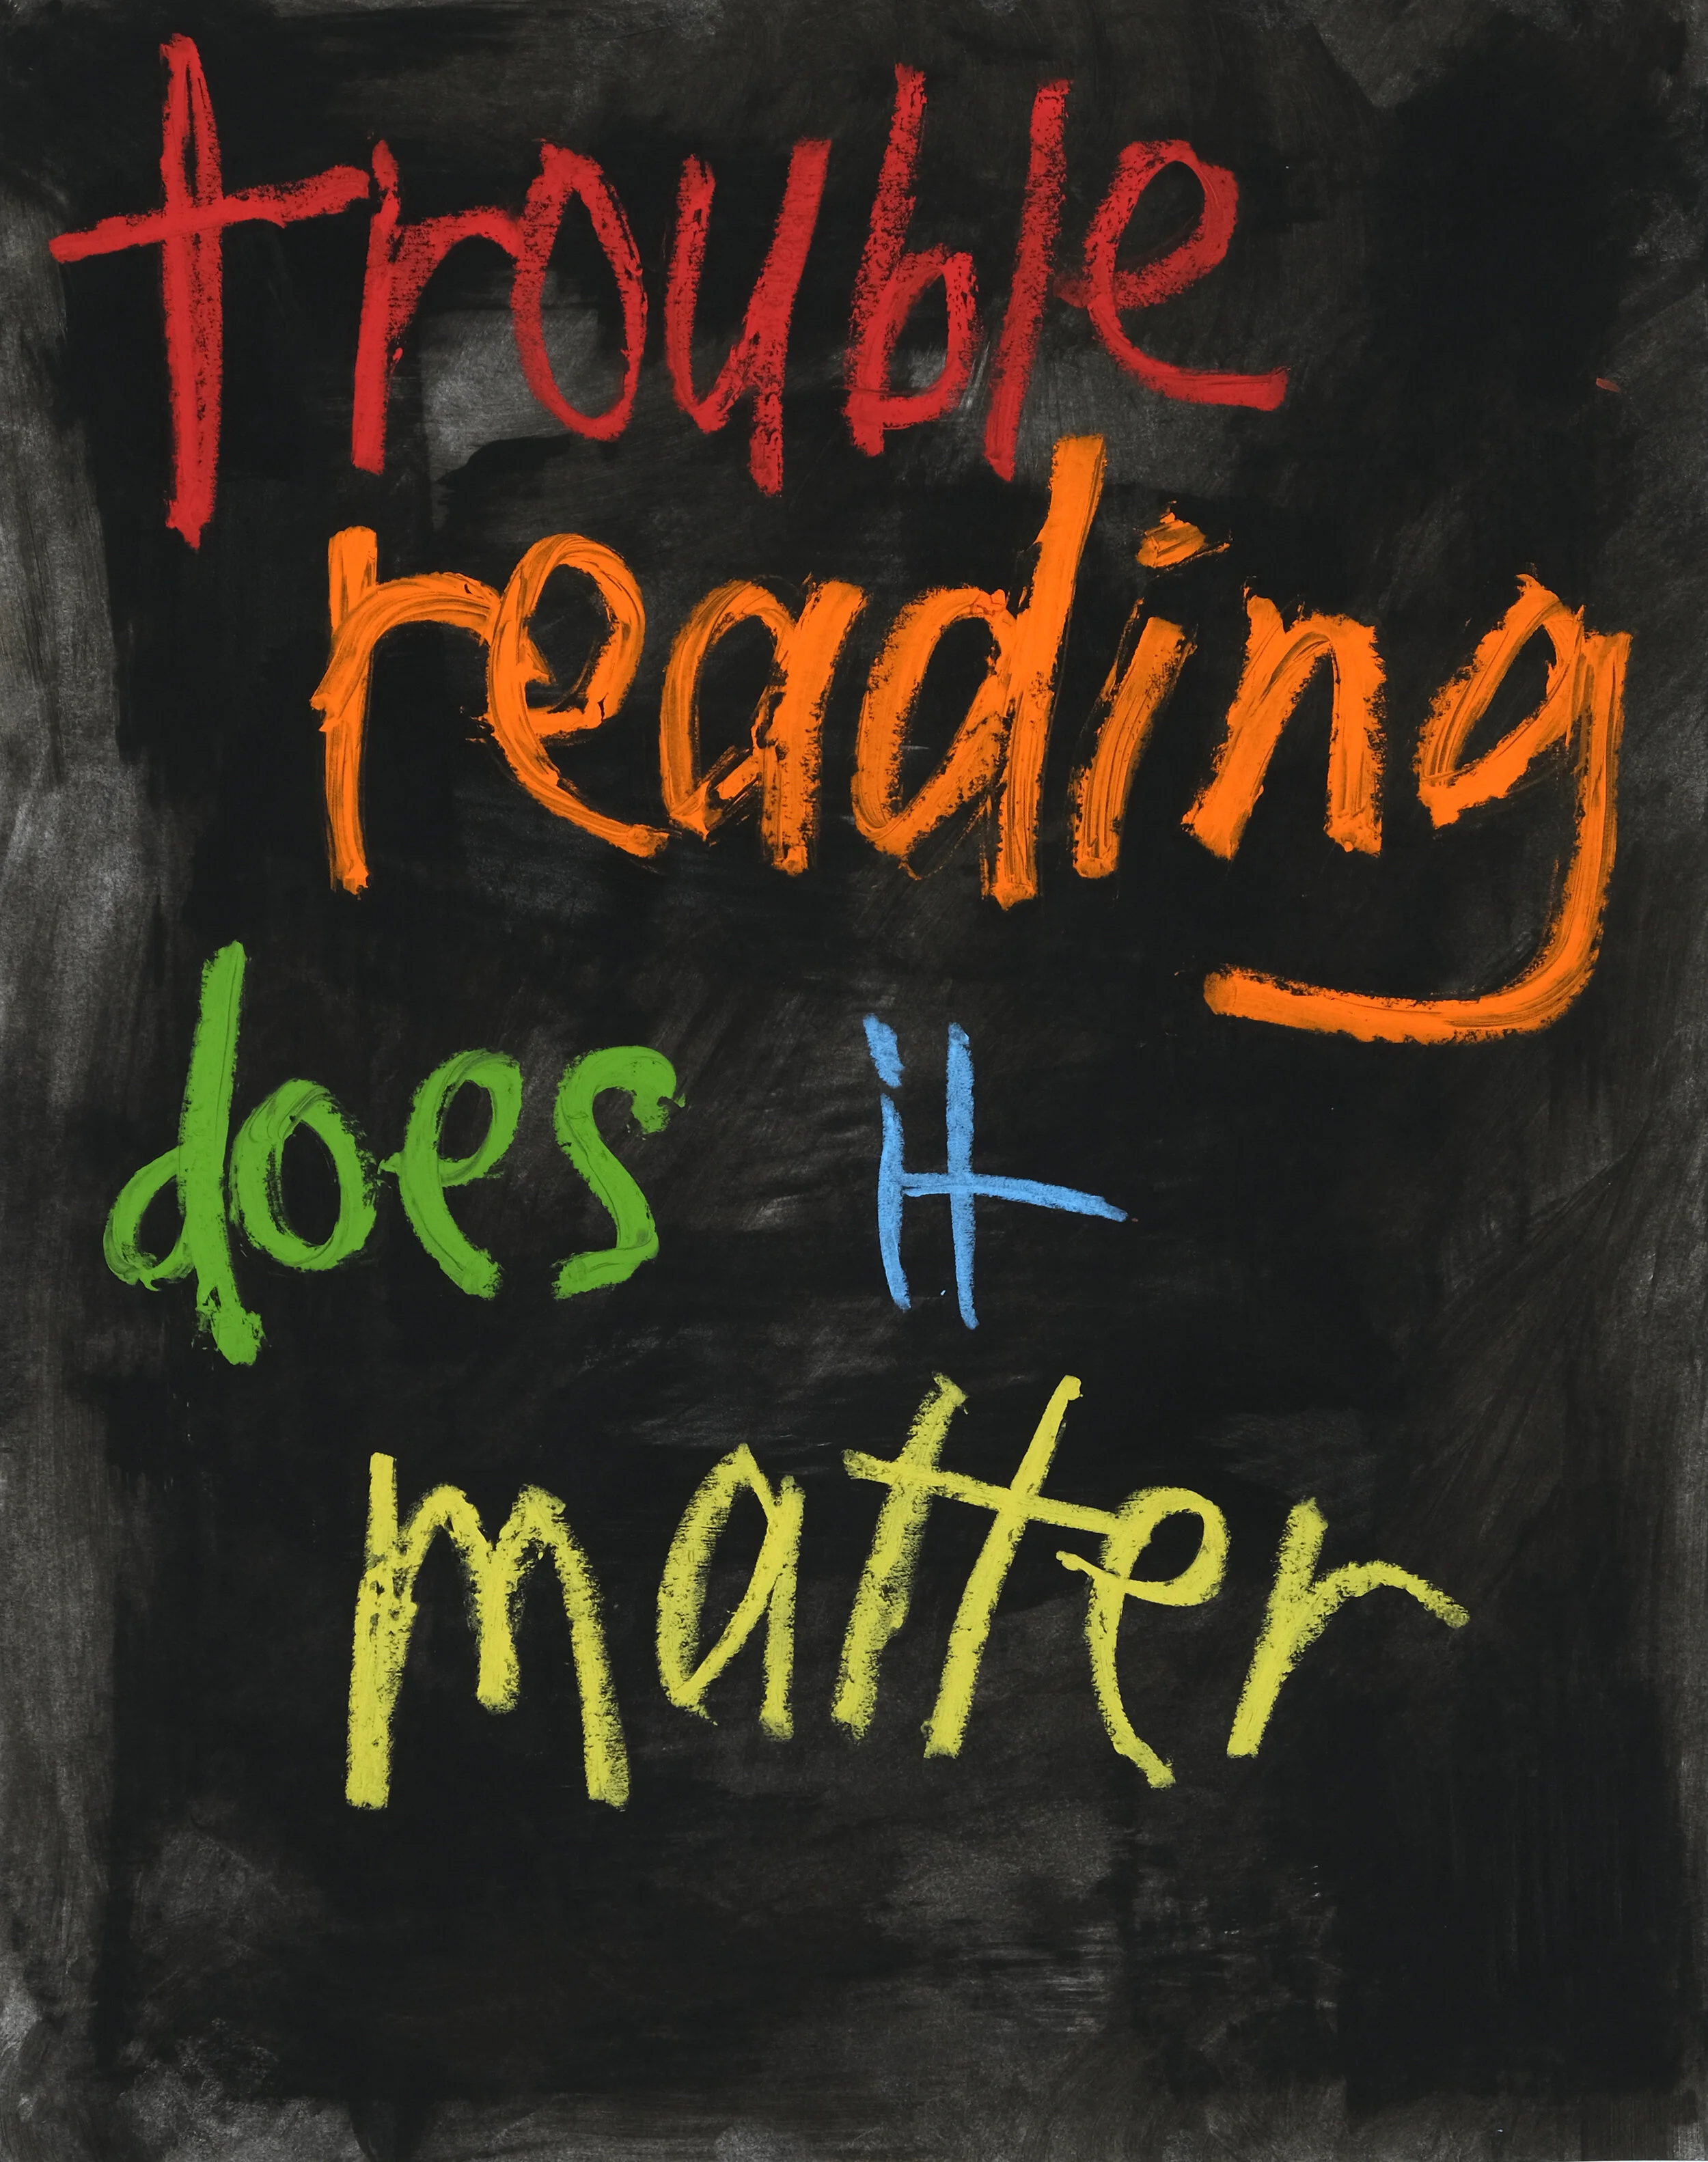 trouble
reading
does it
matter